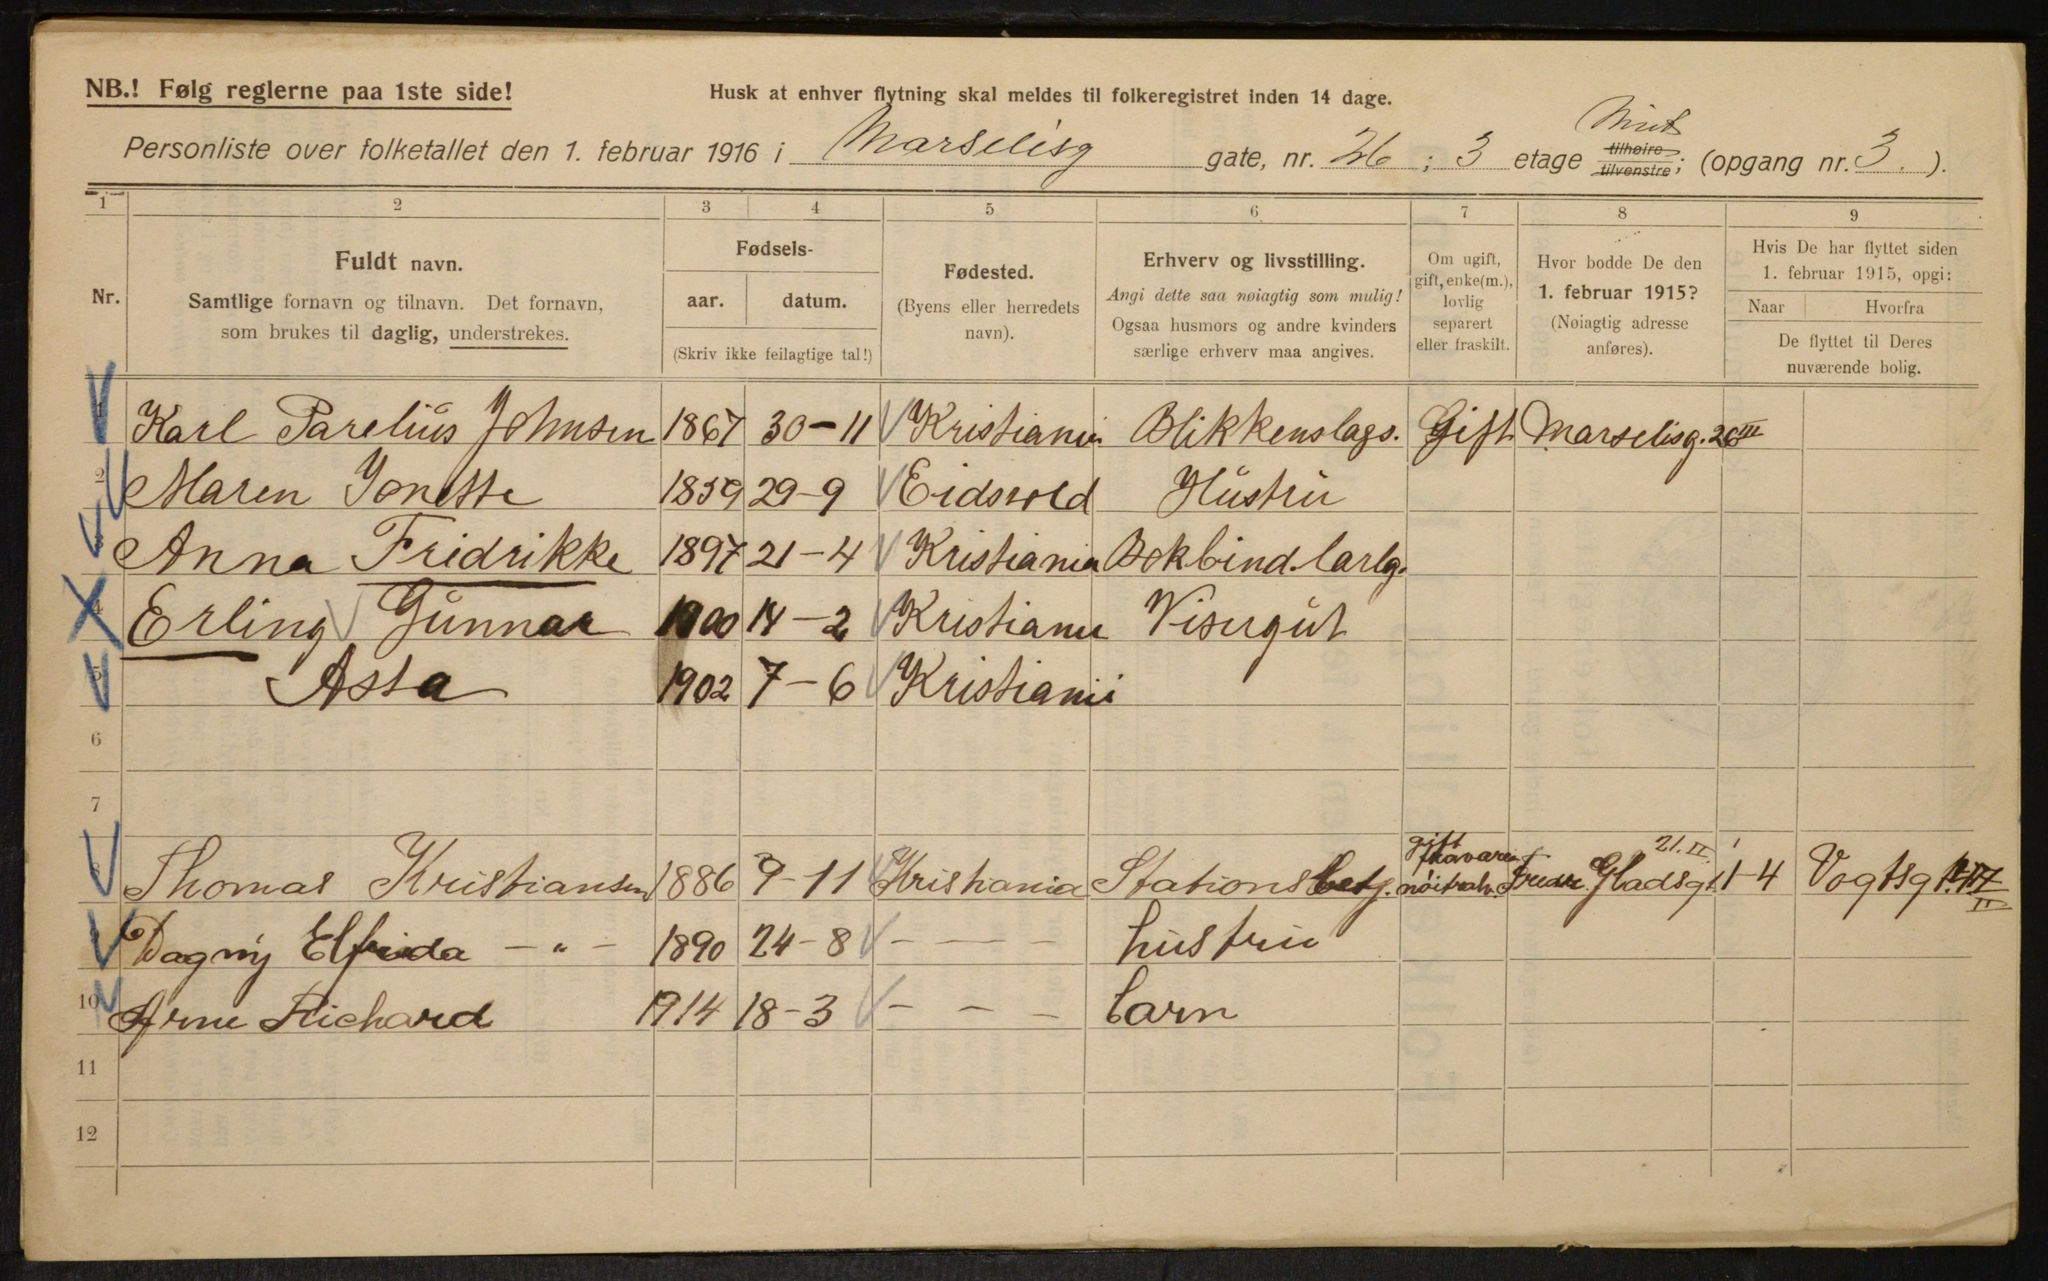 NB.! Følg reglerne paa 1ste side!
Husk at enhver flytning skal meldes til folkeregistret inden 14 dage.
Personliste over folketallet den 1. februar 1916 i Marselisg gate, nr. 26; 3 etage tilhøire tilvenstre; (opgang nr. 3.).
1 2 3 4 5 6 7 8 9
Nr.
Fuldt navn.
Samtlige fornavn og tilnavn. Det fornavn,
som brukes til daglig, understrekes.
Fødsels-
aar. datum.
(Skriv ikke feilagtige tal!)
Fødested.
(Byens eller herredets
navn).
Erhverv og livsstilling.
Angi dette saa nøiagtig som mulig!
Ogsaa husmors og andre kvinders
særlige erhverv maa angives.
Om ugift,
gift, enke(m.),
lovlig
separert
eller fraskilt.
Hvor bodde De den
1. februar 1915?
(Nøiagtig adresse
anføres).
Hvis De har flyttet siden
1. februar 1915, opgi:
Naar Hvorfra
De flyttet til Deres
nuværende bolig.
1 Karl Parelius Johnsen 1867 30-11 Kristiania Blikkenslags. Gift Marselisg. 26 III
2 Maren Jonette 1859 29-9 Eidsvold Hustru
3 Anna Fridrikke 1897 21-4 Kristiania Bokbind.larlg.
4 Erling Gunnar 1900 14-2 Kristiania Visergut
5 Asta 1902 7-6 Kristiania
6
7
8 Thomas Kristiansen 1886 9-11 Kristiania Stationsbetj. gift Fredr. Gladsgt. 21.II. 1-4 Vogtsg
9 Dagny Elfrida -"- 1890 24-8 - - - hustru
10 Arne Richard 1914 18-3 - - - barn
11
12